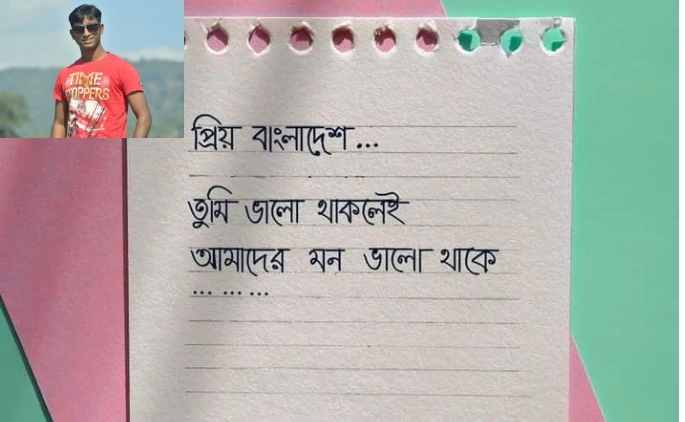 TIME
STOPPERS
প্রিয় বাংলাদেশ...
তুমি ভালো থাকলেই
আমাদের মন ভালো থাকে
... ... ...